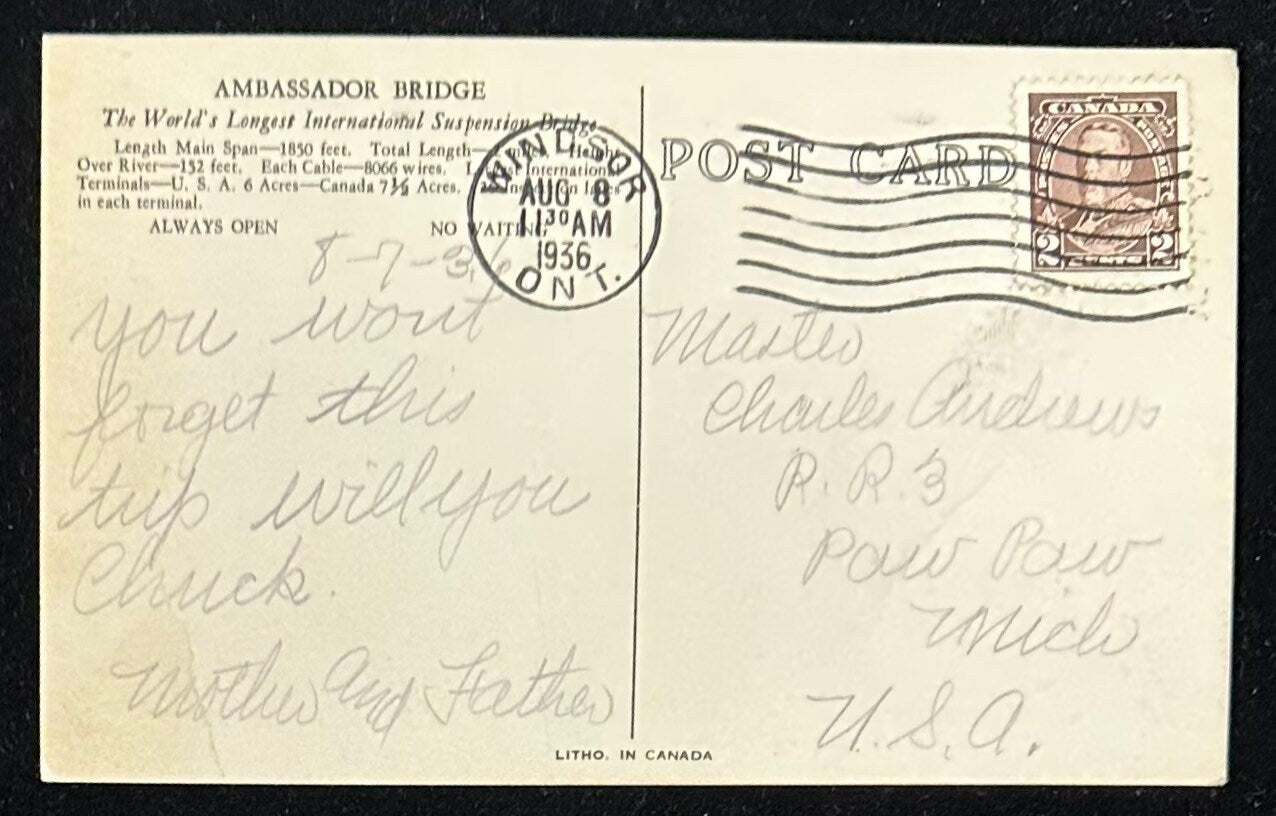 AMBASSADOR BRIDGE
The World's Longest International Suspension Bridge
Length Main Span—1850 feet. Total Length— Height
Over River—152 feet. Each Cable—8066 wires. International
Terminals—U. S. A. 6 Acres—Canada 7½ Acres.
in each terminal.
ALWAYS OPEN NO WAITING
8-7-36
you wont
forget this
trip will you
Chuck.
Mother and Father
WINDSOR
AUG 8
11 30 AM
1936
ONT.
POST CARD
CANADA
POSTAGE
2 CENTS 2
Master
Charles Andrews
R. R. 3
Paw Paw
Mich
U. S. A.
LITHO. IN CANADA